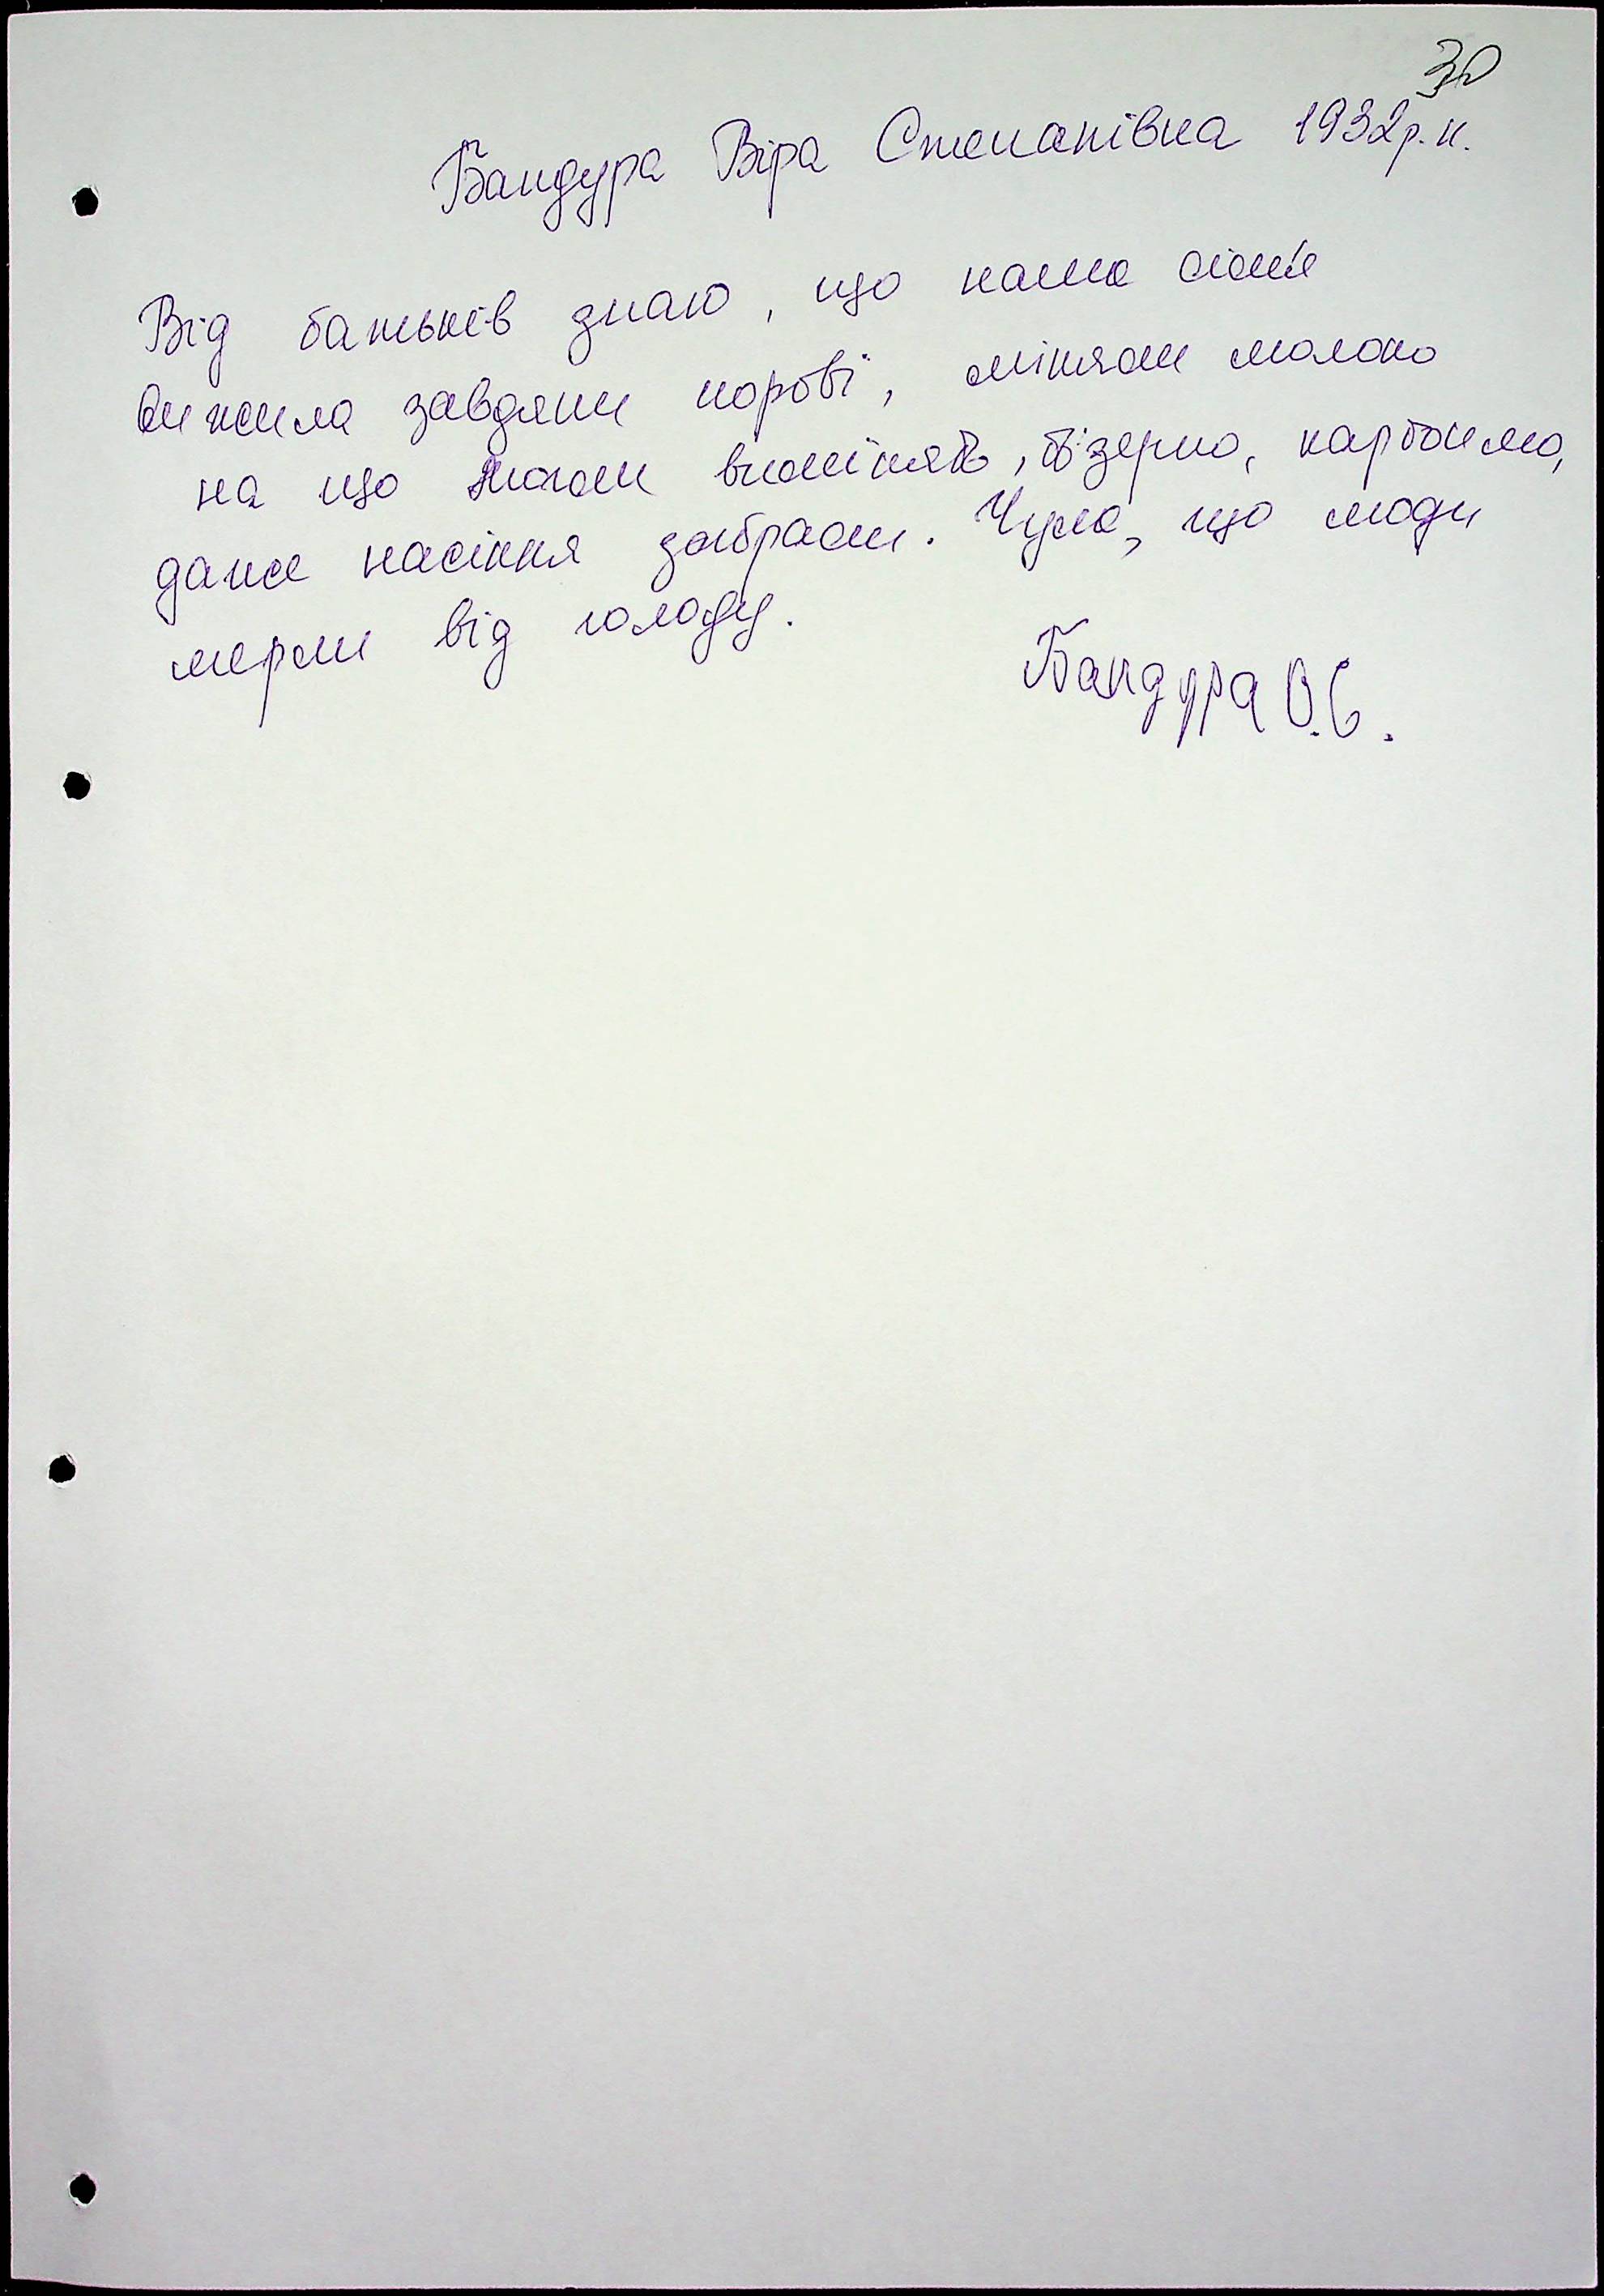 30
Бандура Віра Степанівна 1932р.н.
Від батьків знаю, що наша сім'я
вижила завдяки корові, міняли молоко
на що могли виміняти, зерно, картоплю,
даже насіння забрали. Чула, що люди
мерли від голоду.
Бандура В.С.